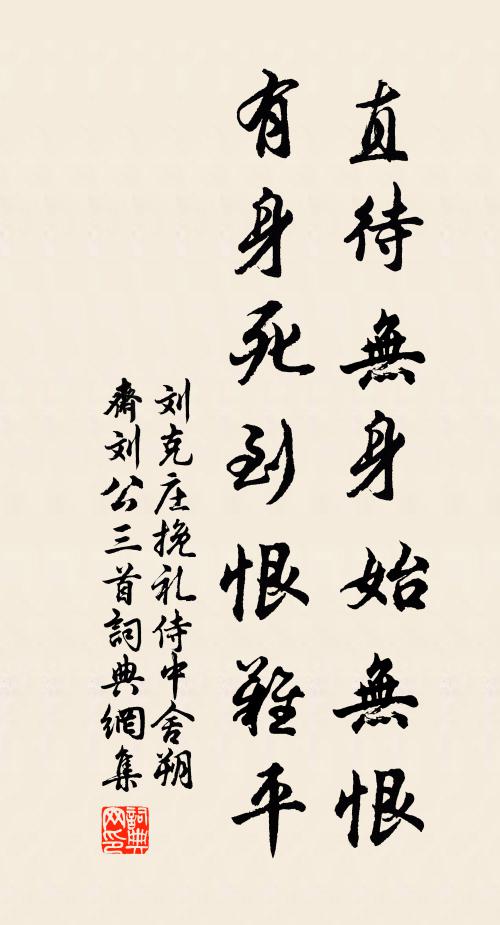 直待無身始無恨
有身死到恨難平
刘克庄挽礼侍中舍朔
齋刘公三首詞典網集
詞典
网印